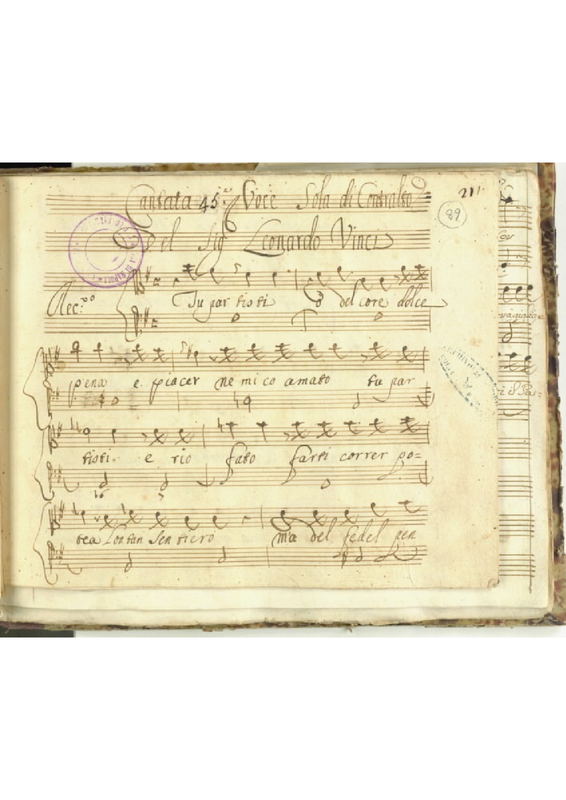 Cantata 45.a Voce Sola di Contralto
211
89
Del Sig Leonardo Vinci
Rec.vo
Tu par tisti o del core dolce
pena e piacer ne mi co amato tu par
tisti e rio fato farti correr po=
tea lontan sen tiero ma del fedel pen